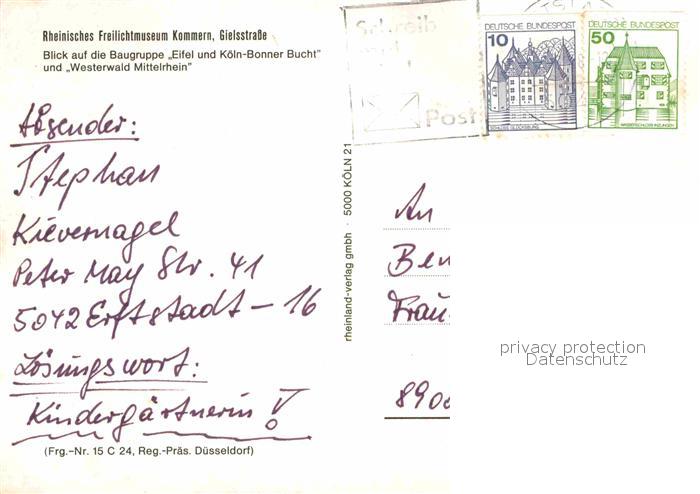 Rheinisches Freilichtmuseum Kommern, Gielsstraße
Blick auf die Baugruppe „Eifel und Köln-Bonner Bucht"
und „Westerwald Mittelrhein"
Absender:
Stephan
Kievernagel
Peter May Str. 41
5042 Erftstadt - 16
Lösungswort:
Kindergärtnerin!
(Frg.-Nr. 15 C 24, Reg.-Präs. Düsseldorf)
rheinland-verlag gmbh · 5000 KÖLN 21
Schreib
Post
DEUTSCHE BUNDESPOST
10
SCHLOSS GLÜCKSBURG
DEUTSCHE BUNDESPOST
50
WASSERSCHLOSS INZLINGEN
An
Ben
Frau
890
privacy protection
Datenschutz